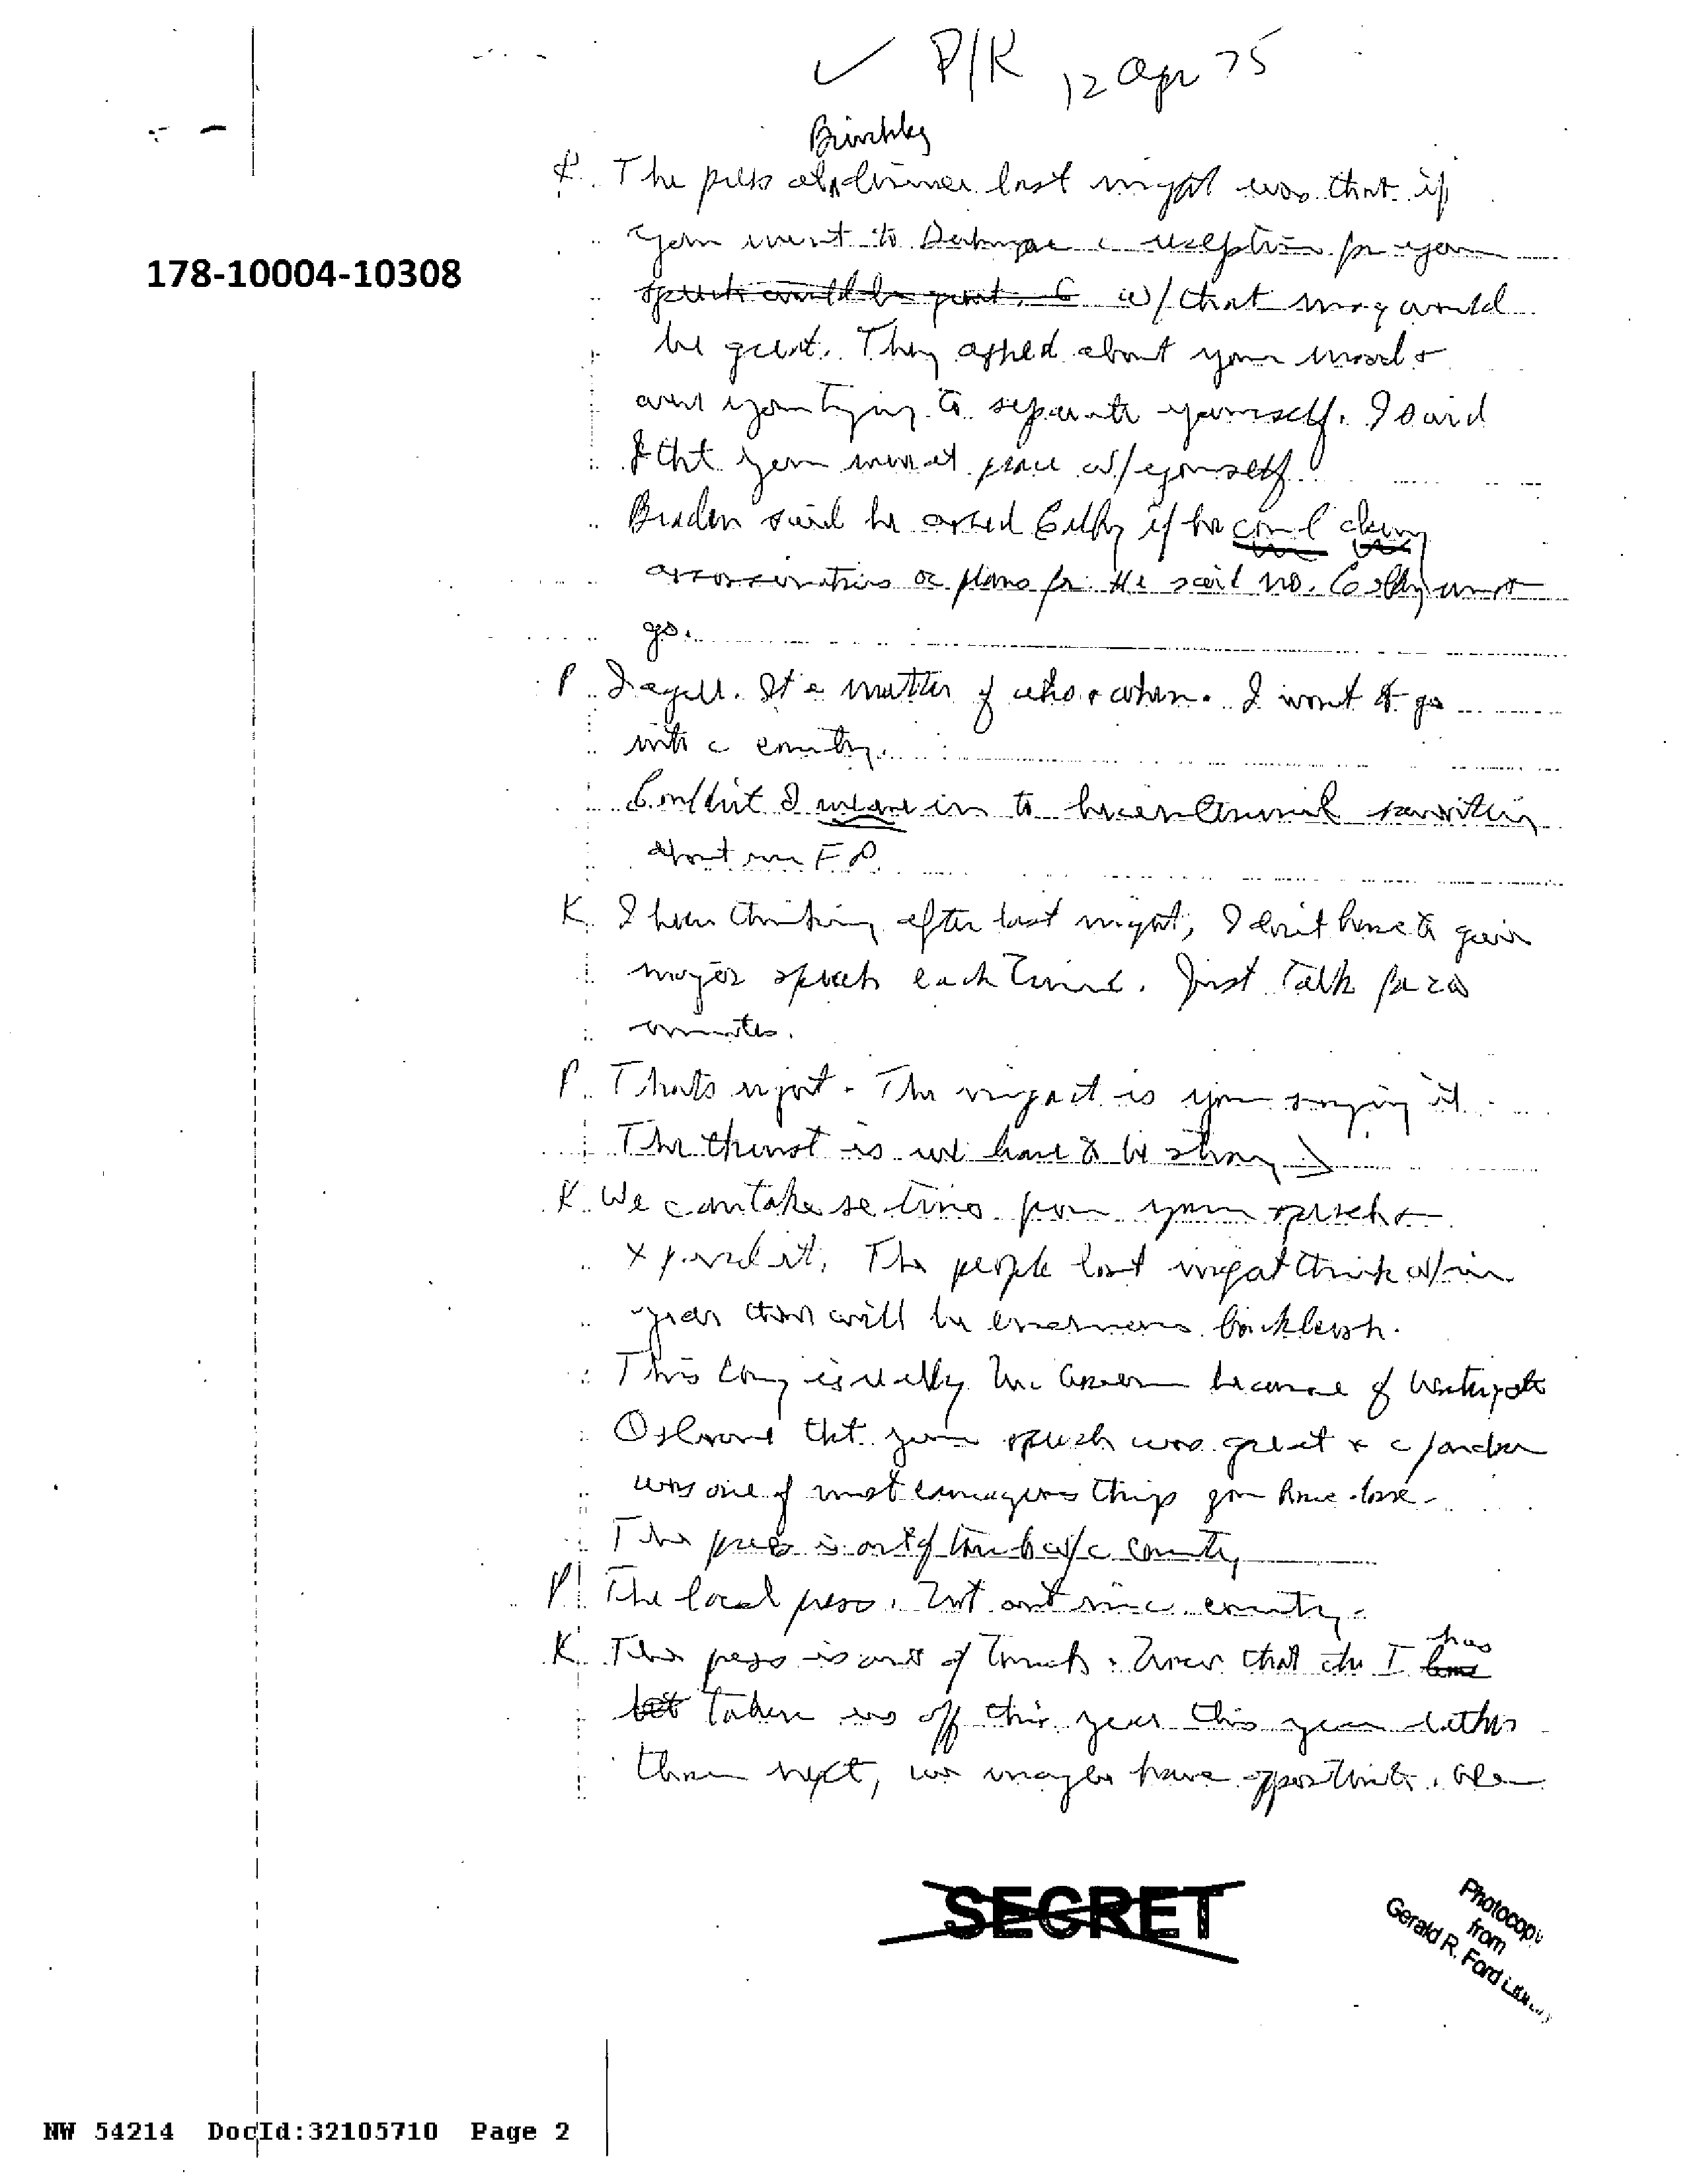 ✓ P/K 12 Apr 75
Brinkley
K. The press at dinner last night was that if
you went to a reception for you
speech would be great. w/ that may would
be great. They asked about your mood &
are you trying to separate yourself. I said
that you were at peace w/ yourself.
178-10004-10308
Braden said he asked Colby if he could deny
assassinations or plans for. He said no. Colby must
go.
P. I agree. It's a matter of who & when. I want to go
into a country.
Conflict I in to
about our FP.
K. I been thinking after last night, I don't have to give
major speech each time. Just talk for 20
minutes.
P. Thats right. The impact is you saying it
The thrust is we have to be strong
K. We can take sections from your speech &
expand it. The people last night think w/in
year there will be enormous backlash.
This Cong is really McGovern because of Watergate
Osborne tht your speech was great & c pardon
was one of most courageous things you have done.
The press is out of touch w/ c country
P. The local press. Not out in c country.
K. This press is out of touch. Now that the I has
taken us off this year this year rather
than next, we maybe have opportunity.
SECRET
Photocopy
from
Gerald R. Ford Library
NW 54214 DocId:32105710 Page 2